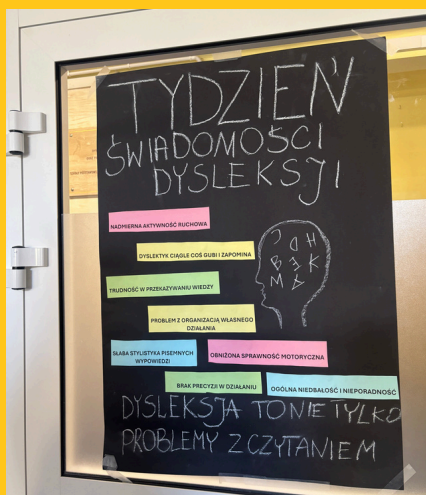 TYDZIEŃ
ŚWIADOMOŚCI
DYSLEKSJI
NADMIERNA AKTYWNOŚĆ RUCHOWA
DYSLEKTYK CIĄGLE COŚ GUBI I ZAPOMINA
TRUDNOŚĆ W PRZEKAZYWANIU WIEDZY
PROBLEM Z ORGANIZACJĄ WŁASNEGO
DZIAŁANIA
SŁABA STYLISTYKA PISEMNYCH
WYPOWIEDZI
OBNIŻONA SPRAWNOŚĆ MOTORYCZNA
BRAK PRECYZJI W DZIAŁANIU
OGÓLNA NIEDBAŁOŚĆ I NIEPORADNOŚĆ
DYSLEKSJA TO NIE TYLKO
PROBLEMY Z CZYTANIEM